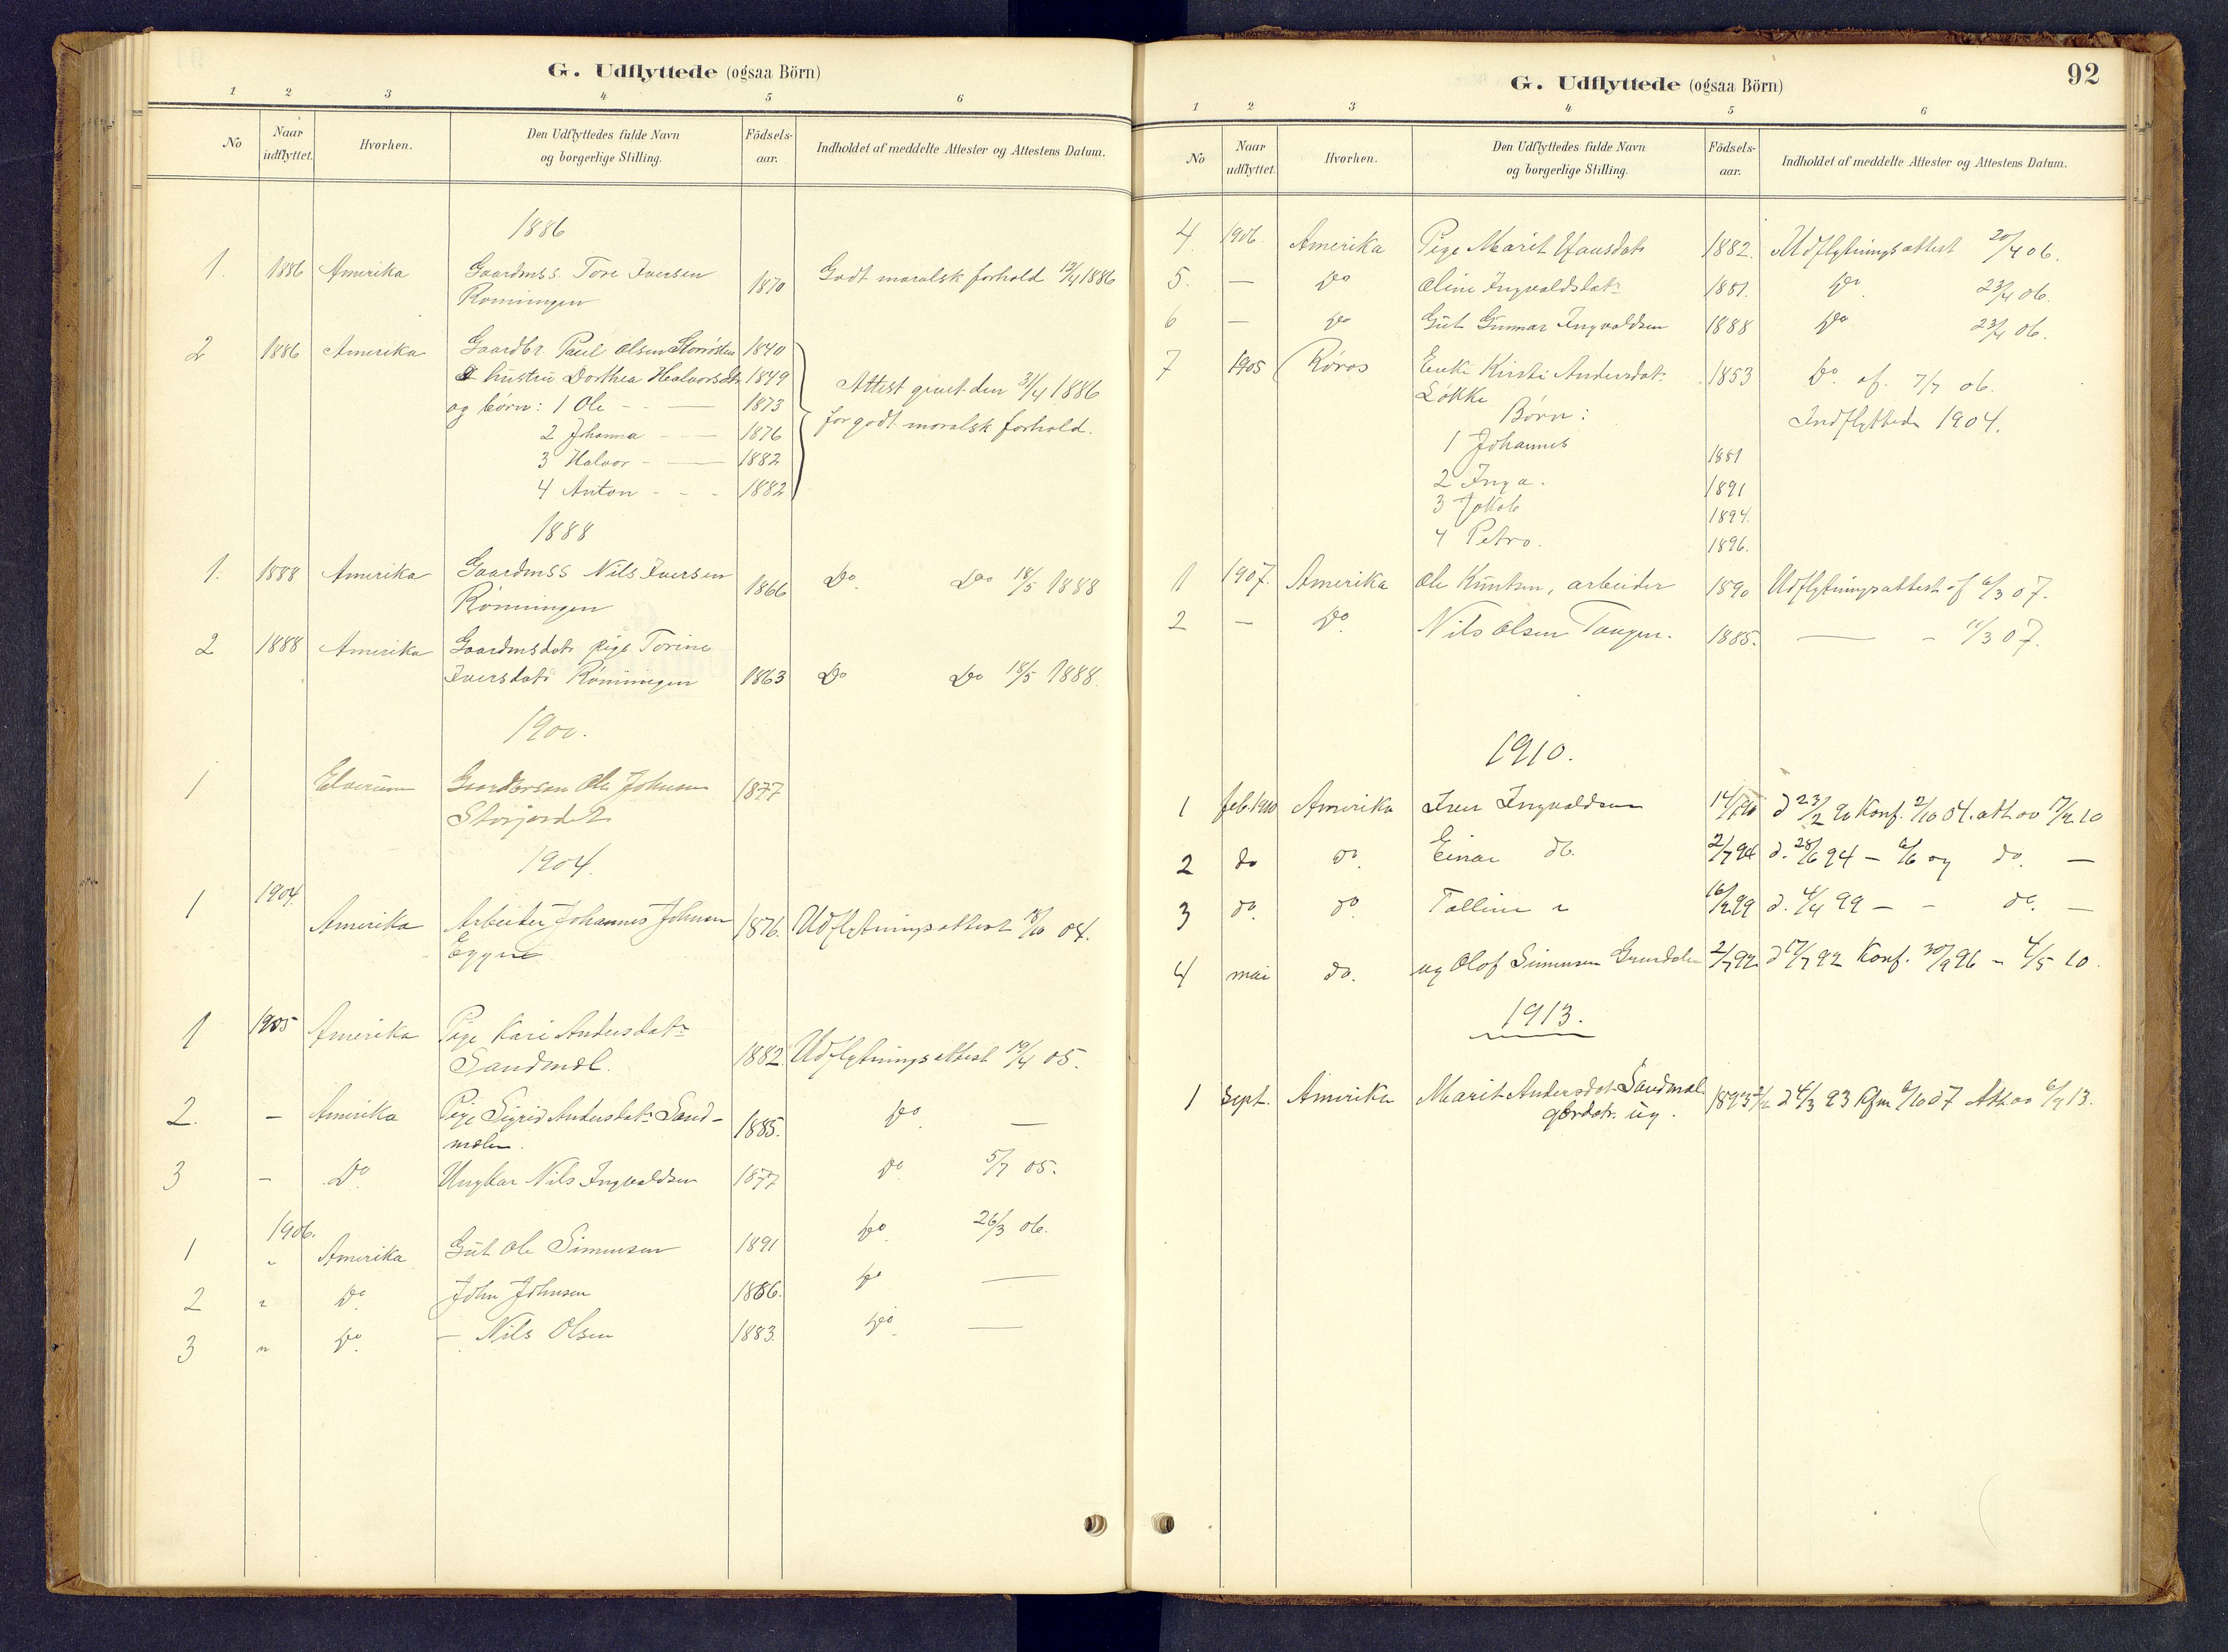 G. Udflyttede (ogsaa Börn)
1 2 3 4 5 6
No
Naar udflyttet.
Hvorhen.
Den Udflyttedes fulde Navn og borgerlige Stilling.
Födsels-aar.
Indholdet af meddelte Attester og Attestens Datum.
1886
1. 1886 Amerika Gaardmss. Tore Iversen 1870 Godt moralsk forhold 12/4 1886
Rønningen
2 1886 Amerika Gaardbr. Paul Olsen Storrøsten 1840
& hustru Dorthea Halvorsdtr 1849 Attest givet den 31/4 1886
og børn: 1 Ole - - — 1873 for godt moralsk forhold.
2 Johanna - — 1876
3 Halvor - — 1882
4 Anton - - - 1882
1888
1. 1888 Amerika Gaardmss Nils Iversen 1866 Do Do 18/5 1888
Rønningen
2 1888 Amerika Gaardmsdatr pige Torine
Iversdatr Rønningen 1863 Do Do 18/5 1888.
1900.
1 Elverum Gaardersøn Ole Johnsen 1877
Storjordet
1904.
1 1904. Amerika Arbeider Johannes Johnsen 1876. Udflytningsattest /10 04.
Eggen
1 1905 Amerika Pige Kari Andersdatr
Sandmæl. 1882 Udflytningsattest 19/4 05.
2. — Amerika Pige Sigrid Andersdatr Sand- 1885. Do —
mælen.
3 — Do Ungkar Nils Ingvaldsen 1877 Do 5/7 05.
1906.
1 " Amerika Gut Ole Simensen 1891 Do 26/3 06.
2 " Do John Johnsen 1886. Do —
3 " Do. — Nils Olsen 1883. Do —
92
G. Udflyttede (ogsaa Börn)
1 2 3 4 5 6
No
Naar udflyttet.
Hvorhen.
Den Udflyttedes fulde Navn og borgerlige Stilling.
Födsels-aar.
Indholdet af meddelte Attester og Attestens Datum.
4. 1906. Amerika Pige Marit Hansdatr 1882. Udflytningsattest 20/4 06.
5. — Do Oline Ingvaldsdatr 1881. Do 23/4 06.
6 — Do Gut Gunnar Ingvaldsen 1888 Do 23/4 06.
7 1905 Røros Enke Kirsti Andersdatr 1853 Do. af. 7/7 06.
Løkke
Børn: Indflyttede 1904.
1 Johannes 1881
2 Inga. 1891
3 Jakob 1894.
4 Petro. 1896.
1 1907. Amerika Ole Knutsen, arbeider 1890 Udflytningsattest af 6/3 07.
2 — Do Nils Olsen Tangen. 1885. — - 11/3 07.
1910.
1 feb. 1910 Amerika Iver Ingvaldsen 14/1 90 d 23/2 90 Konf. 2/10 04. att. av 17/2 10
2 do do Einar do. 2/7 94 d. 28/6 94 — do. —
3 do. do. Talline " 16/2 99 d. 4/4 99 — - do. —
4 mai do. ug Olof Simensen Grundalen 2/7 92 d 17/7 92 Konf. 30/9 96 — 4/5 10.
1913.
1 Sept. Amerika Marit Andersdat. Sandmæl 1893 d 4/3 93 Kfm /10 07 Att. av 6/9 13.
gbrdatr. ug.